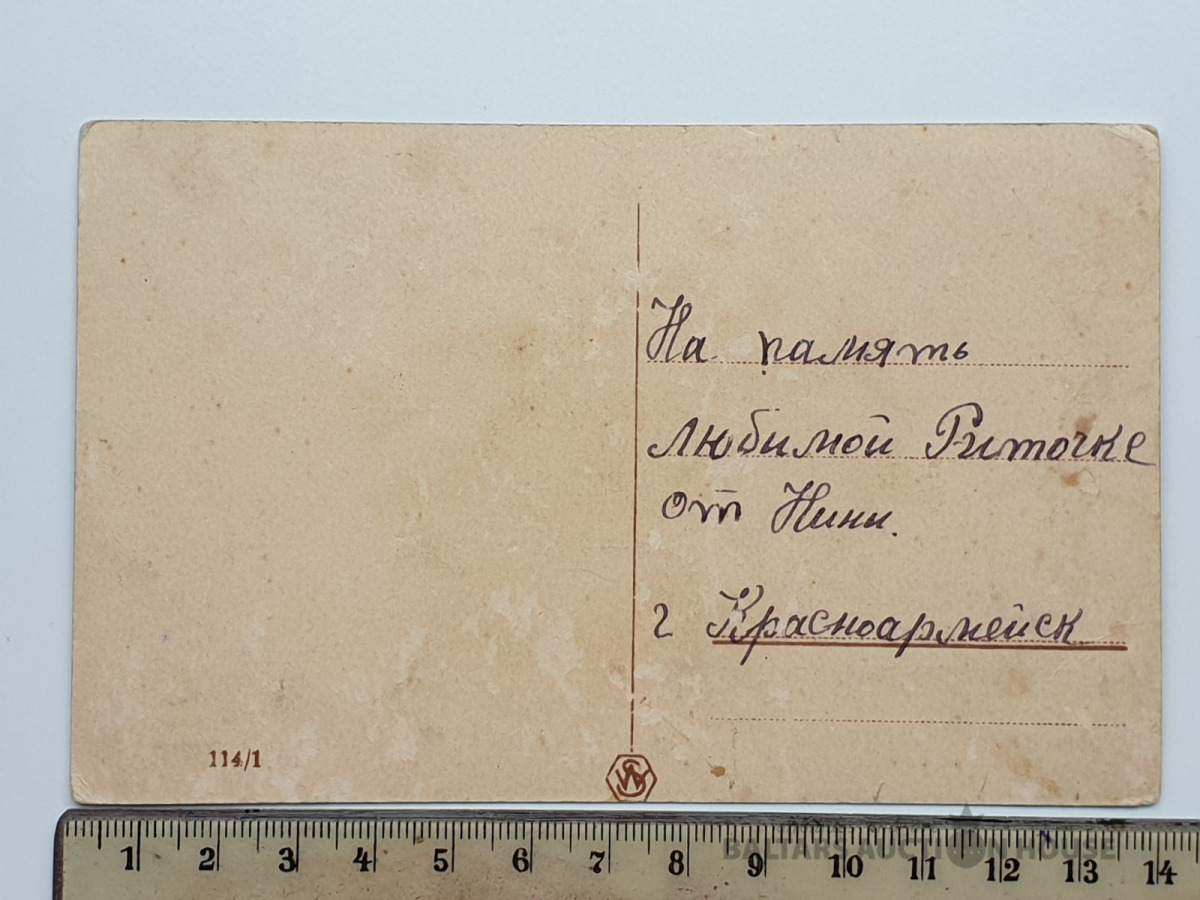 На память
любимой Риточке
от Нины.
г Красноармейск
114/1
1 2 3 4 5 6 7 8 9 10 11 12 13 14
BALTARS AUCTION HOUSE